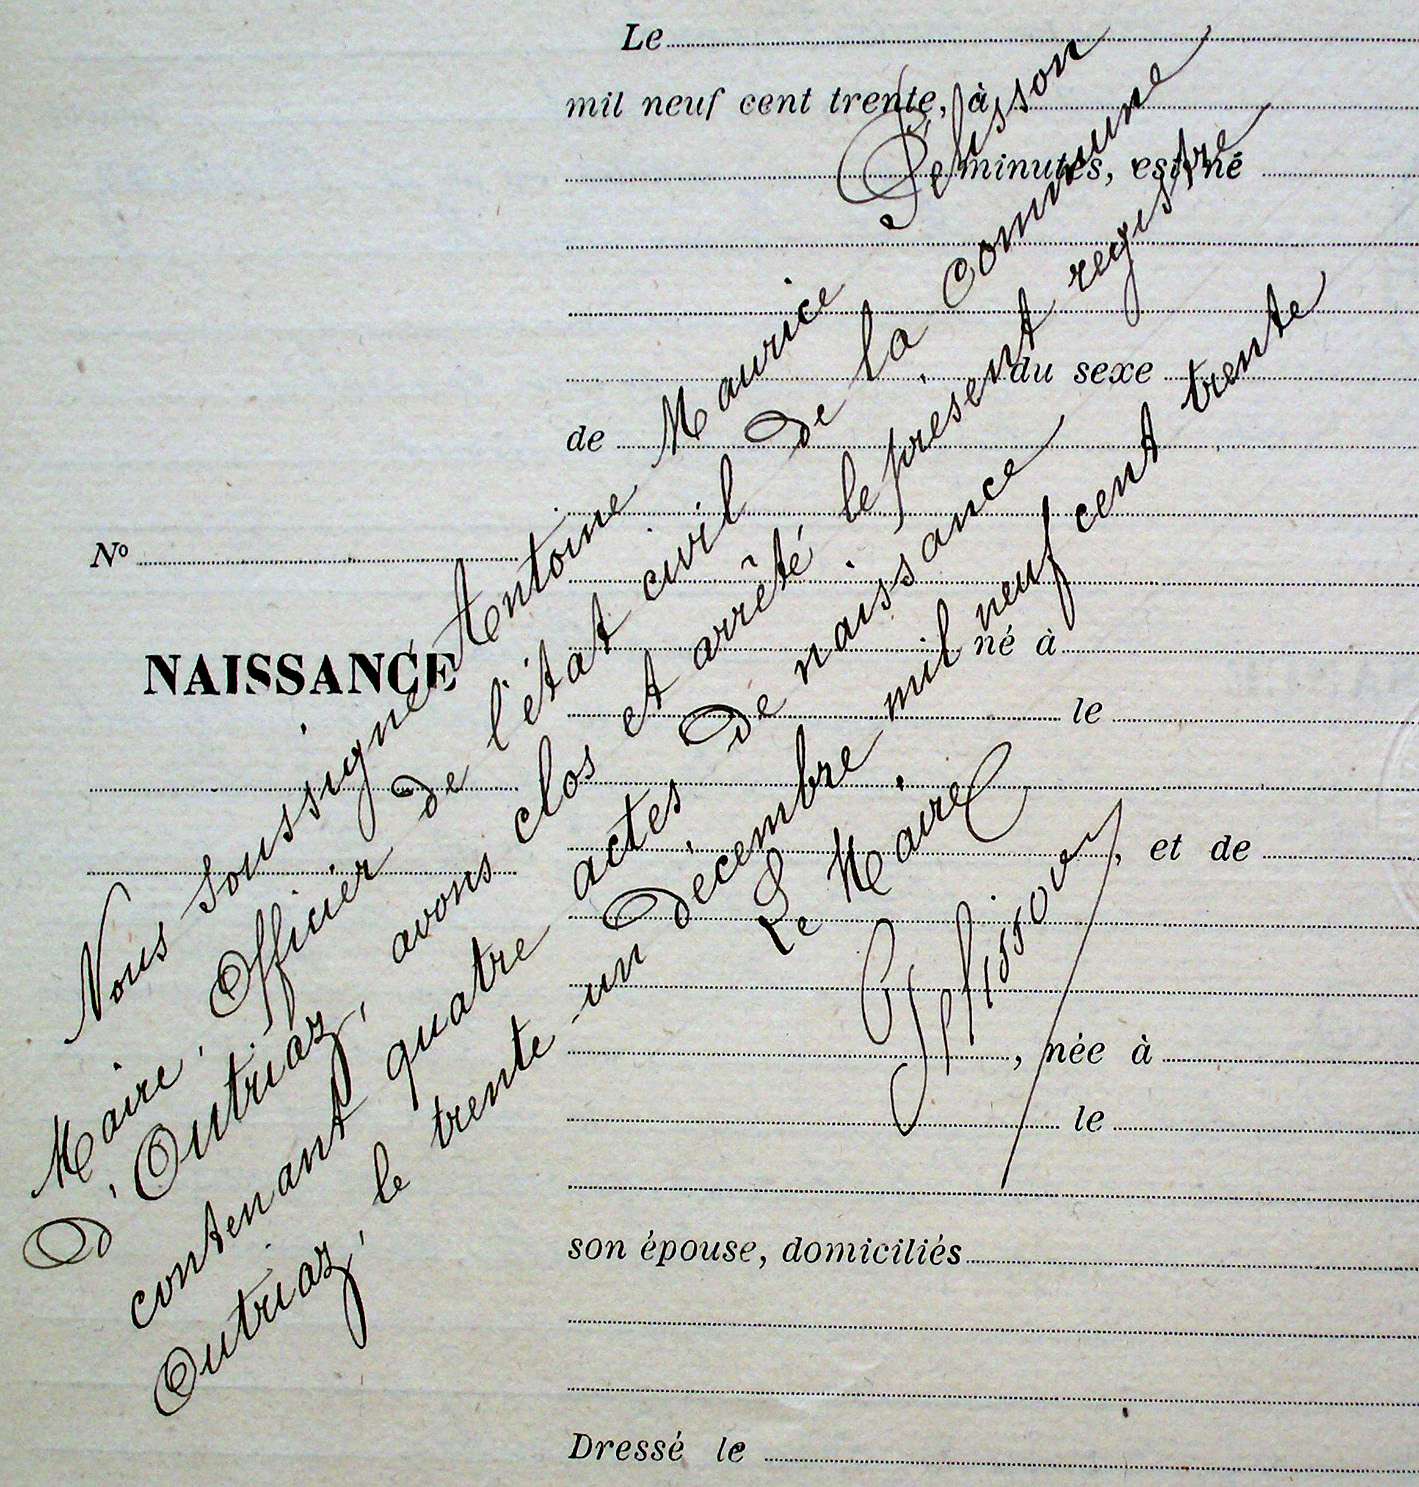 Le
mil neuf cent trente, à
minutes, est né
du sexe
de
N°
NAISSANCE
né à
le
, et de
, née à
le
son épouse, domiciliés
Dressé le
Nous soussigné Antoine Maurice Pélisson
Maire, Officier de l'état civil de la commune
d'Outriaz, avons clos et arrêté le présent registre
contenant quatre actes de naissance
Outriaz, le trente un décembre mil neuf cent trente
Le Maire
Pélisson